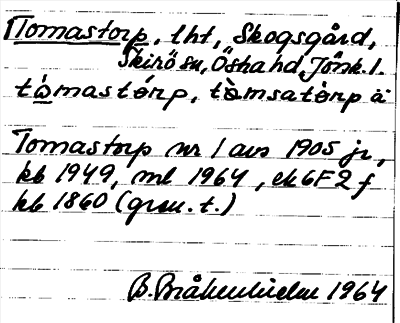 Tomastorp, lht, Skogsgård,
Skirö sn, Östra hd, Jönk. l.
tómastòrp, tòmsatòrp ä
Tomastorp nr 1 avs 1905 jr,
kb 1949, ml 1964, ek 6F2f
kb 1860 (gren. t.)
B. 1964